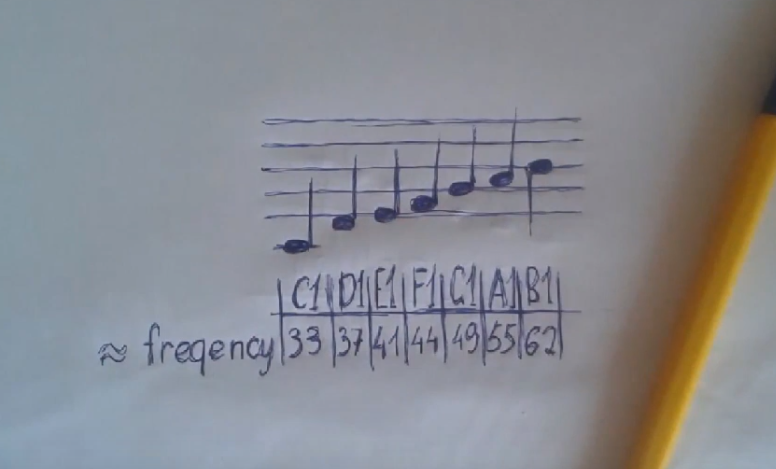 C1 D1 E1 F1 G1 A1 B1
≈ freqency 33 37 41 44 49 55 62